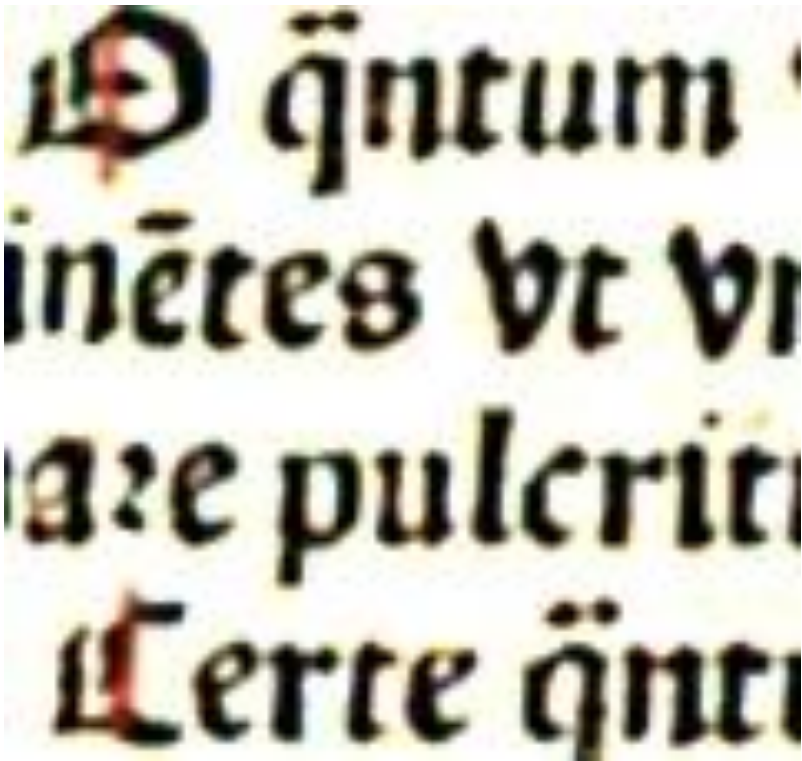 O q̈ntum
inētes vt vn
aꝛe pulcritu
Certe q̈ntu